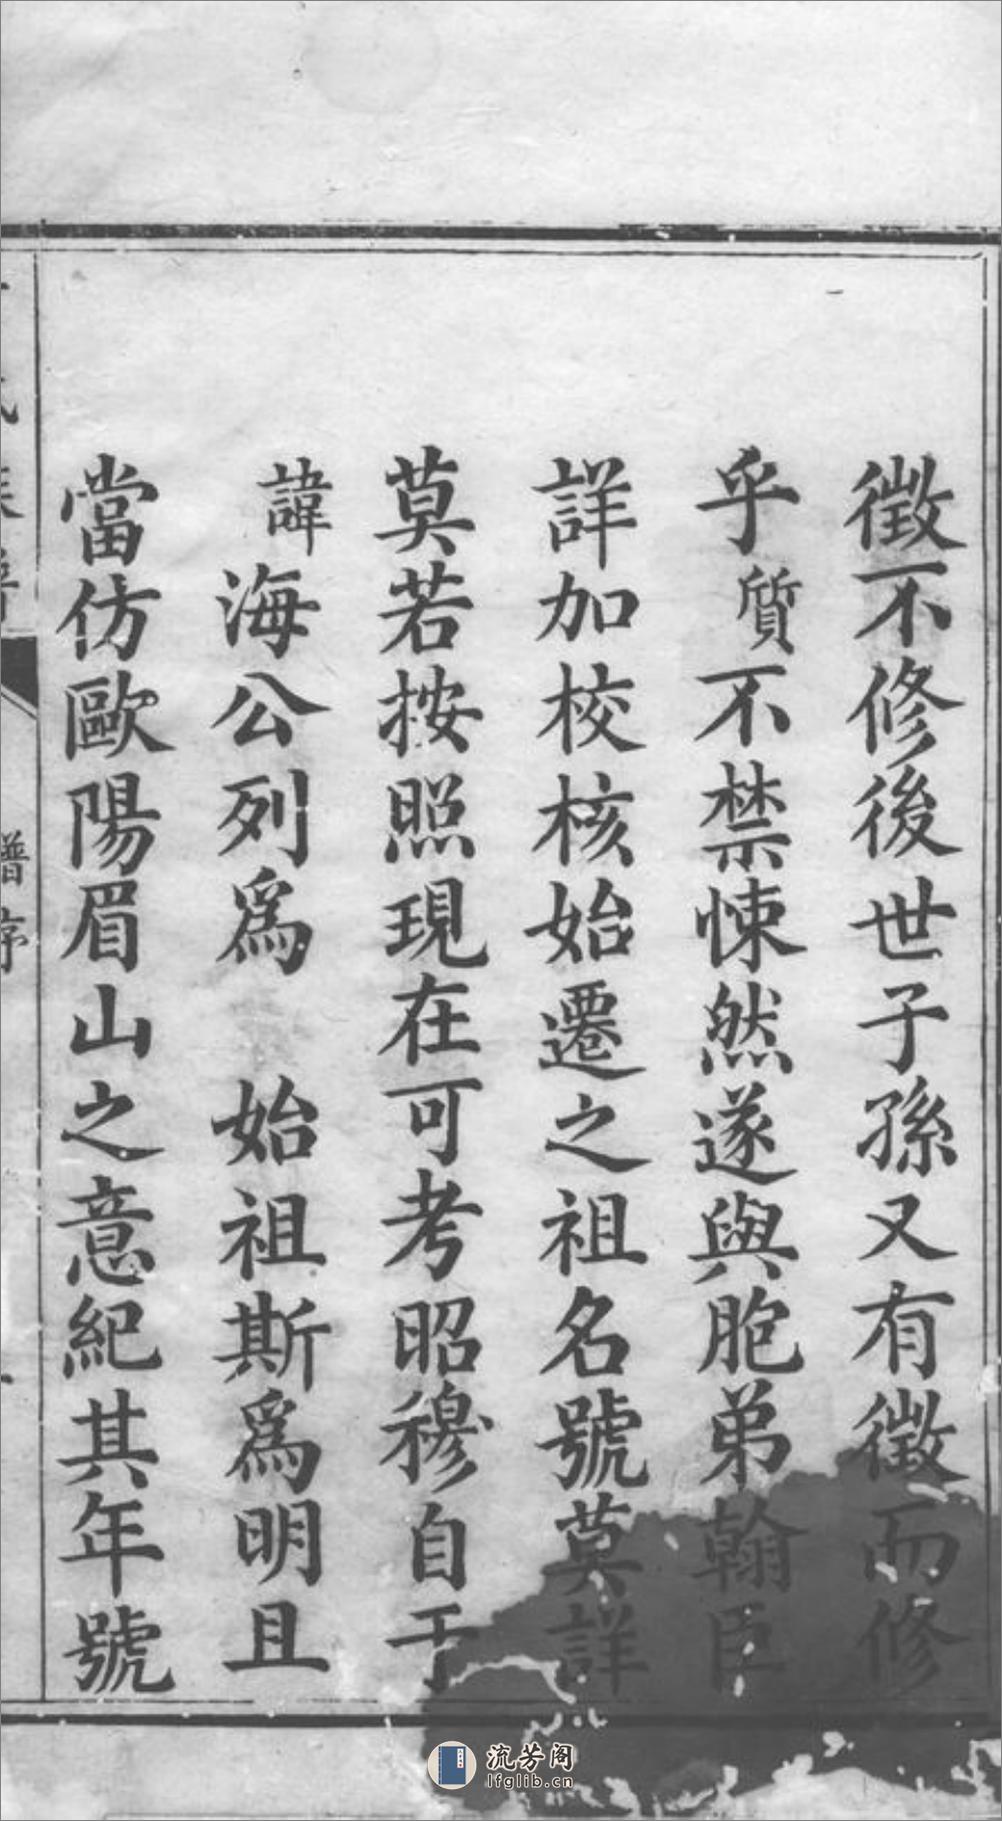 徵不修後世子孫又有徵而修
乎質不禁悚然遂與胞弟翰臣
詳加校核始遷之祖名號莫詳
莫若按照現在可考昭穆自于
諱海公列爲 始祖斯爲明且
當仿歐陽眉山之意紀其年號
氏族譜
譜序
流芳阁
lfglib.cn